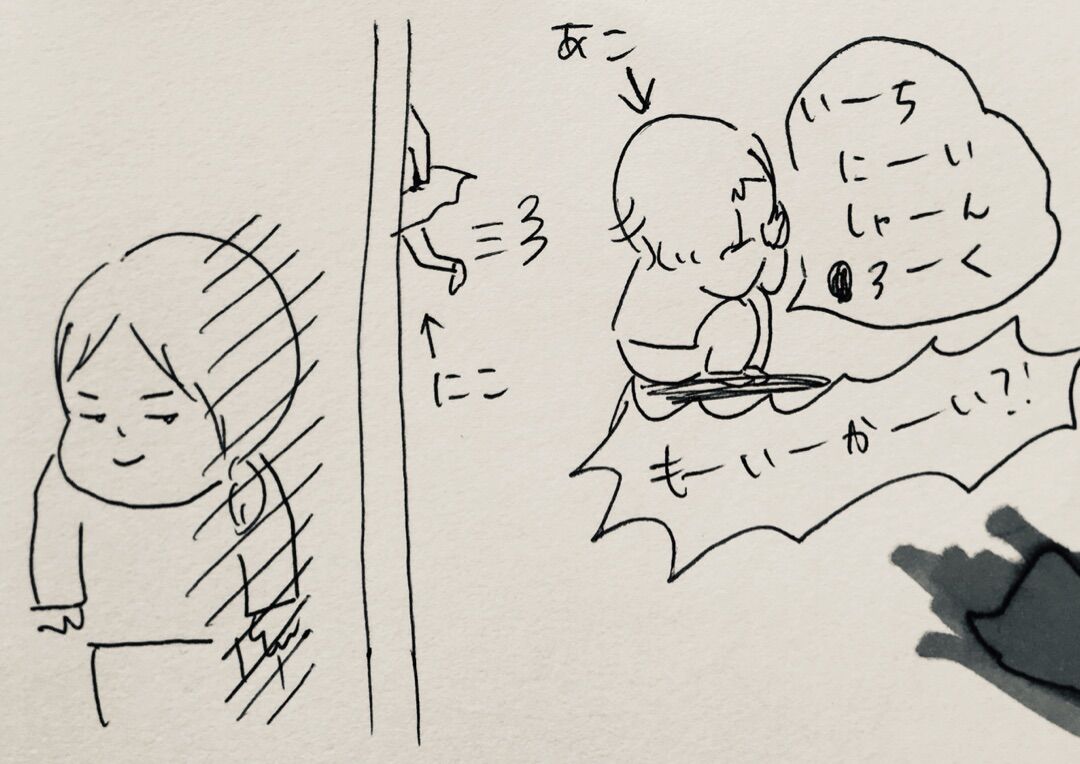 あこ
いーち
にーい
しゃーん
ろーく
もーいーかーい?!
にこ